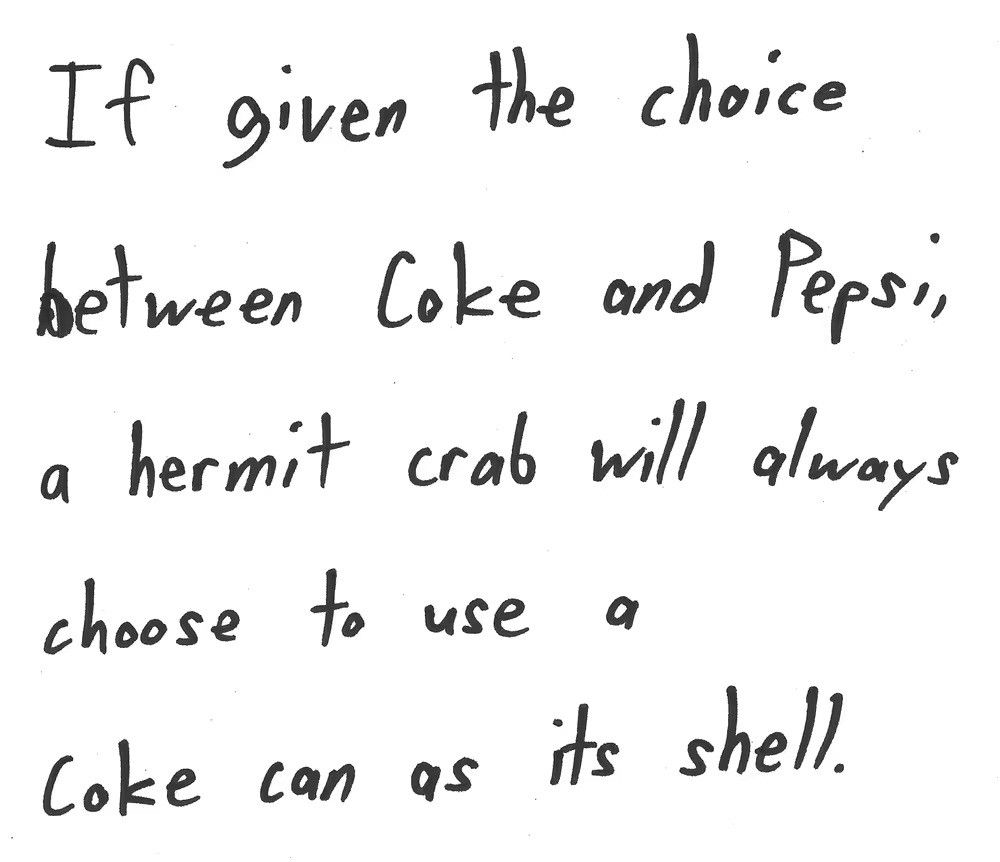 If given the choice
between Coke and Pepsi,
a hermit crab will always
choose to use a
Coke can as its shell.